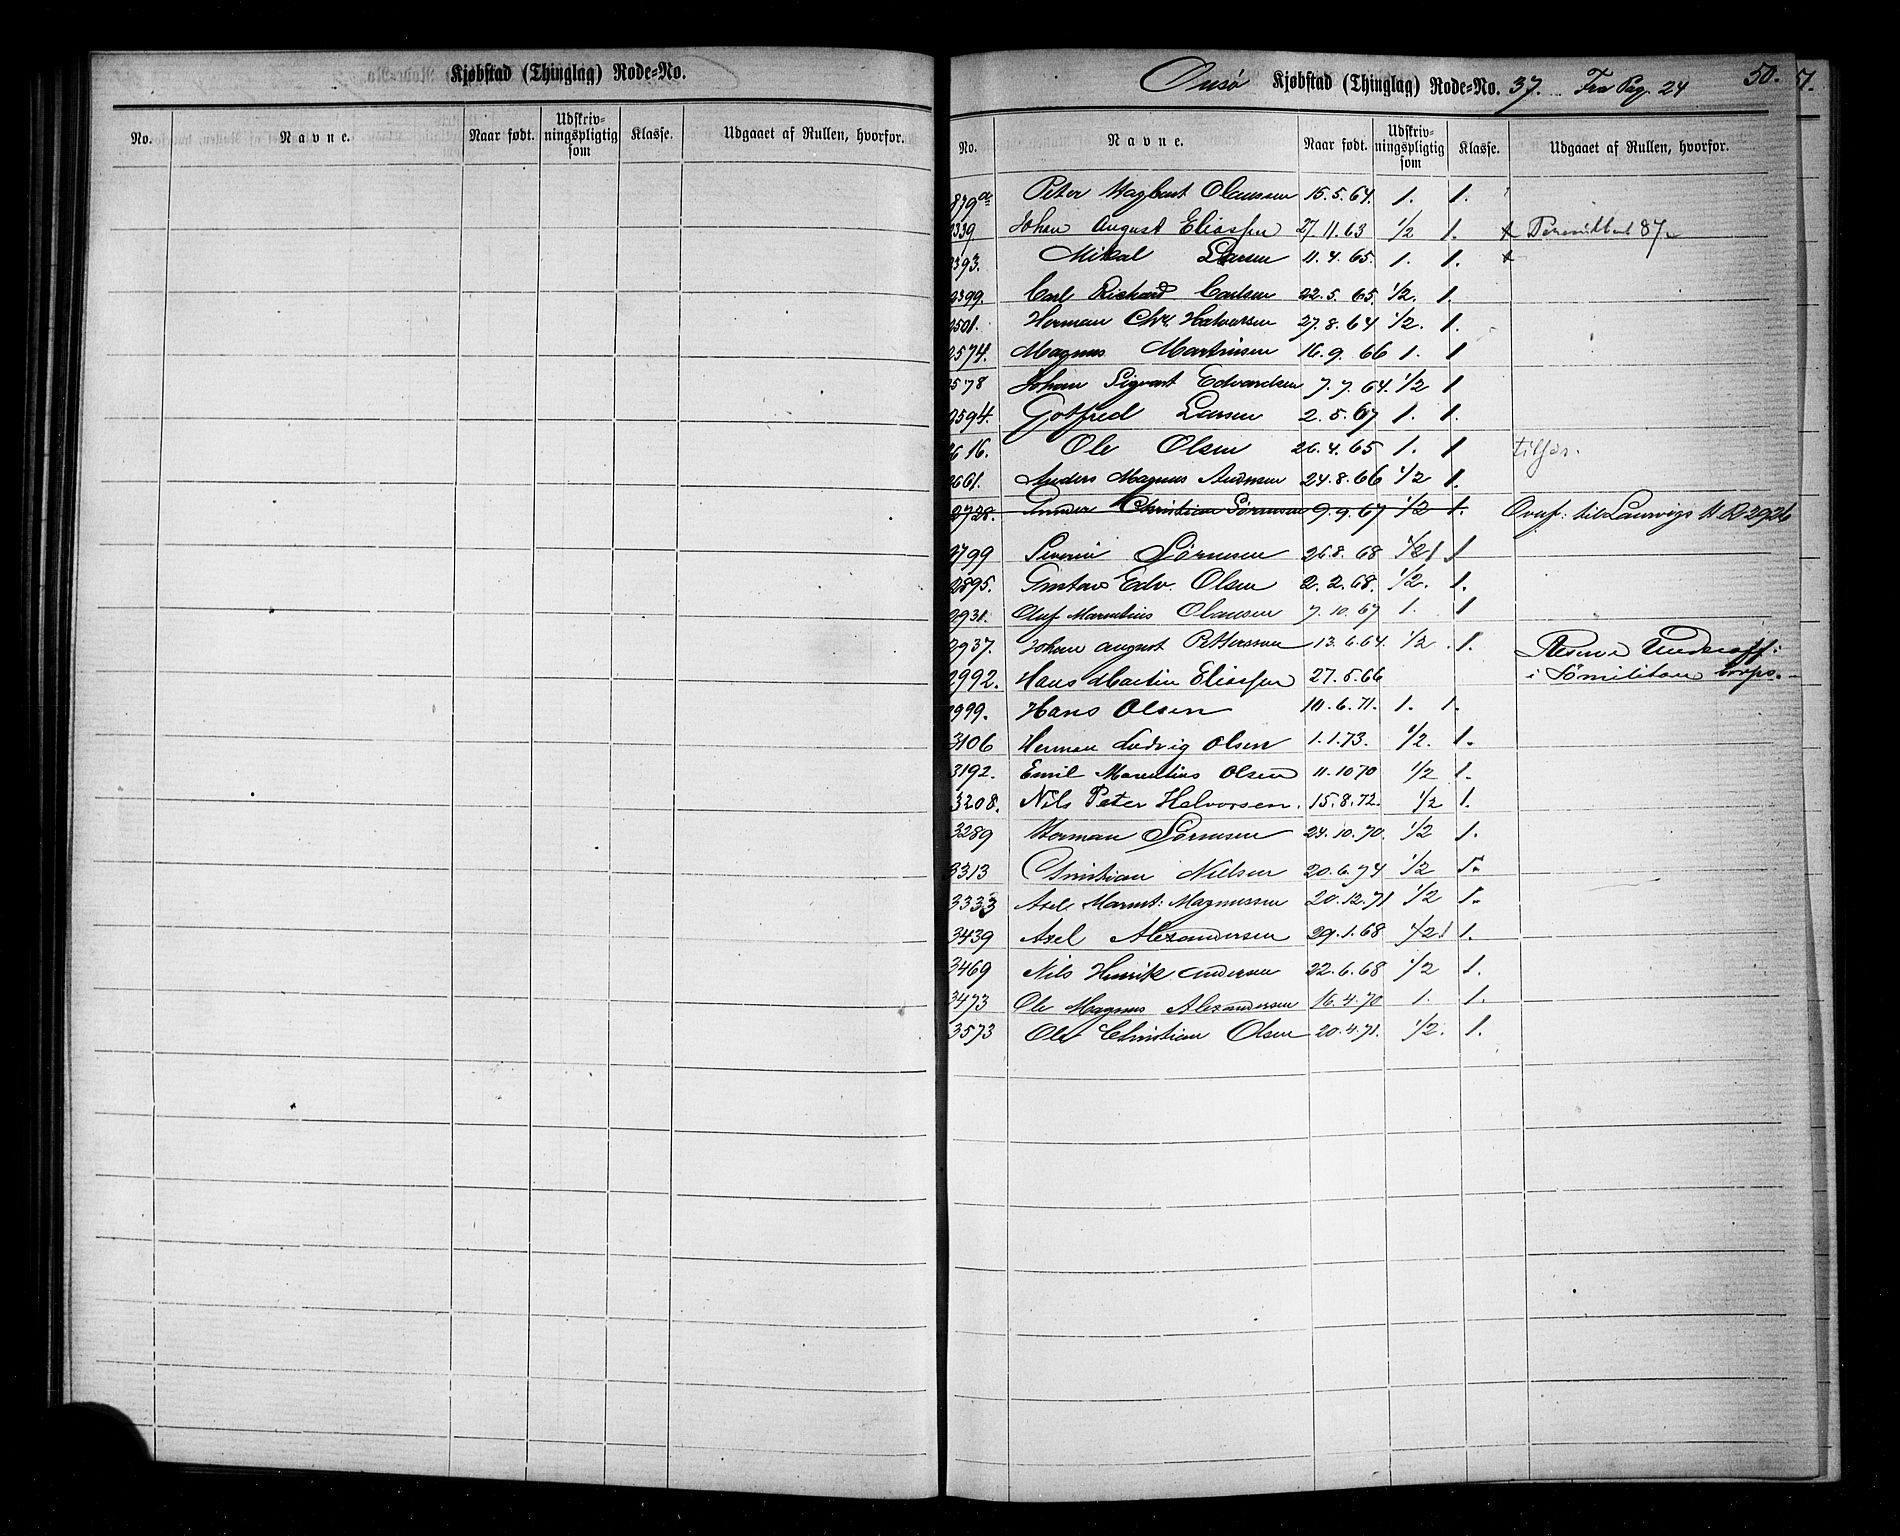 Kjøbstad (Thinglag) Rode-No.
No. Navne. Naar født. Udskrivningspligtig som Klasse. Udgaaet af Rullen, hvorfor.
Onsø Kjøbstad (Thinglag) Rode-No. 37. Fra Pag. 24 50. 51.
No. Navne. Naar født. Udskrivningspligtig som Klasse. Udgaaet af Rullen, hvorfor.
879a Peter Hagbart Olaussen 15.5.64. 1. 1.
2339 Johan August Eliassen 27.11.63 1/2 1. +
2393. Mikal Larsen 11.4.65. 1. 1. +
2399. Carl Rickard Carlsen 22.5.65. 1/2. 1.
2501. Herman Chr. Halvorsen 27.8.64 1/2. 1.
2574. Magnus Martinsen 16.9.66 1. 1
2578 Johan Sigvart Edvardsen 7.7.64. 1/2 1
2594. Gotfred Larsen 2.5.67 1. 1.
2616. Ole Olsen 26.4.65 1. 1
2661. Anders Magnus Andersen 24.8.66 1/2 1.
2728. Gunder Christian Sørensen 9.9.67 1/2 1. Ovf: til Laurvigs H.R 2926
2799 Severin Sørensen 26.8.68 1/2 1
2895. Gustav Edv. Olsen 2.2.68. 1/2. 1.
2931. Oluf Marentius Olaussen 7.10.67 1. 1
2937. Johan August Pettersson 13.6.64. 1/2. 1.
2992. Hans Martin Eliassen 27.5.66 Reserve Underoff: i Sømilitære korps.
2999. Hans Olsen 10.6.71. 1. 1.
3106 Herman Ludvig Olsen 1.1.73. 1/2. 1.
3192. Emil Marentius Olsen 11.10 70 1/2 1.
3208. Nils Peter Halvorsen. 15.8.72. 1/2 1.
3289 Herman Sørensen 24.10.70. 1/2 1.
3313 Christian Nielsen 20.6.74 1/2
3333 Axel Marent: Magnussen 20.12.71 1/2 1.
3439 Axel Alexandersen 29.1.68 1/2 1.
3469 Nils Henrik Andersen 22.6.68 1/2 1.
3473 Ole Magnus Alexandersen 16.4.70 1. 1.
3573 Ole Christian Olsen 20.4.71. 1/2. 1.